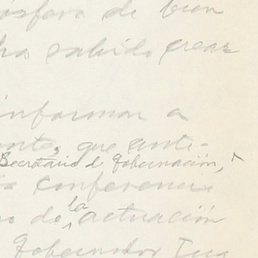 ósfera de bien
ha sabido crear
informar a
porte, que ante-
Secretario de Gobernación,
la conferencia
do la actuación
Gobernador